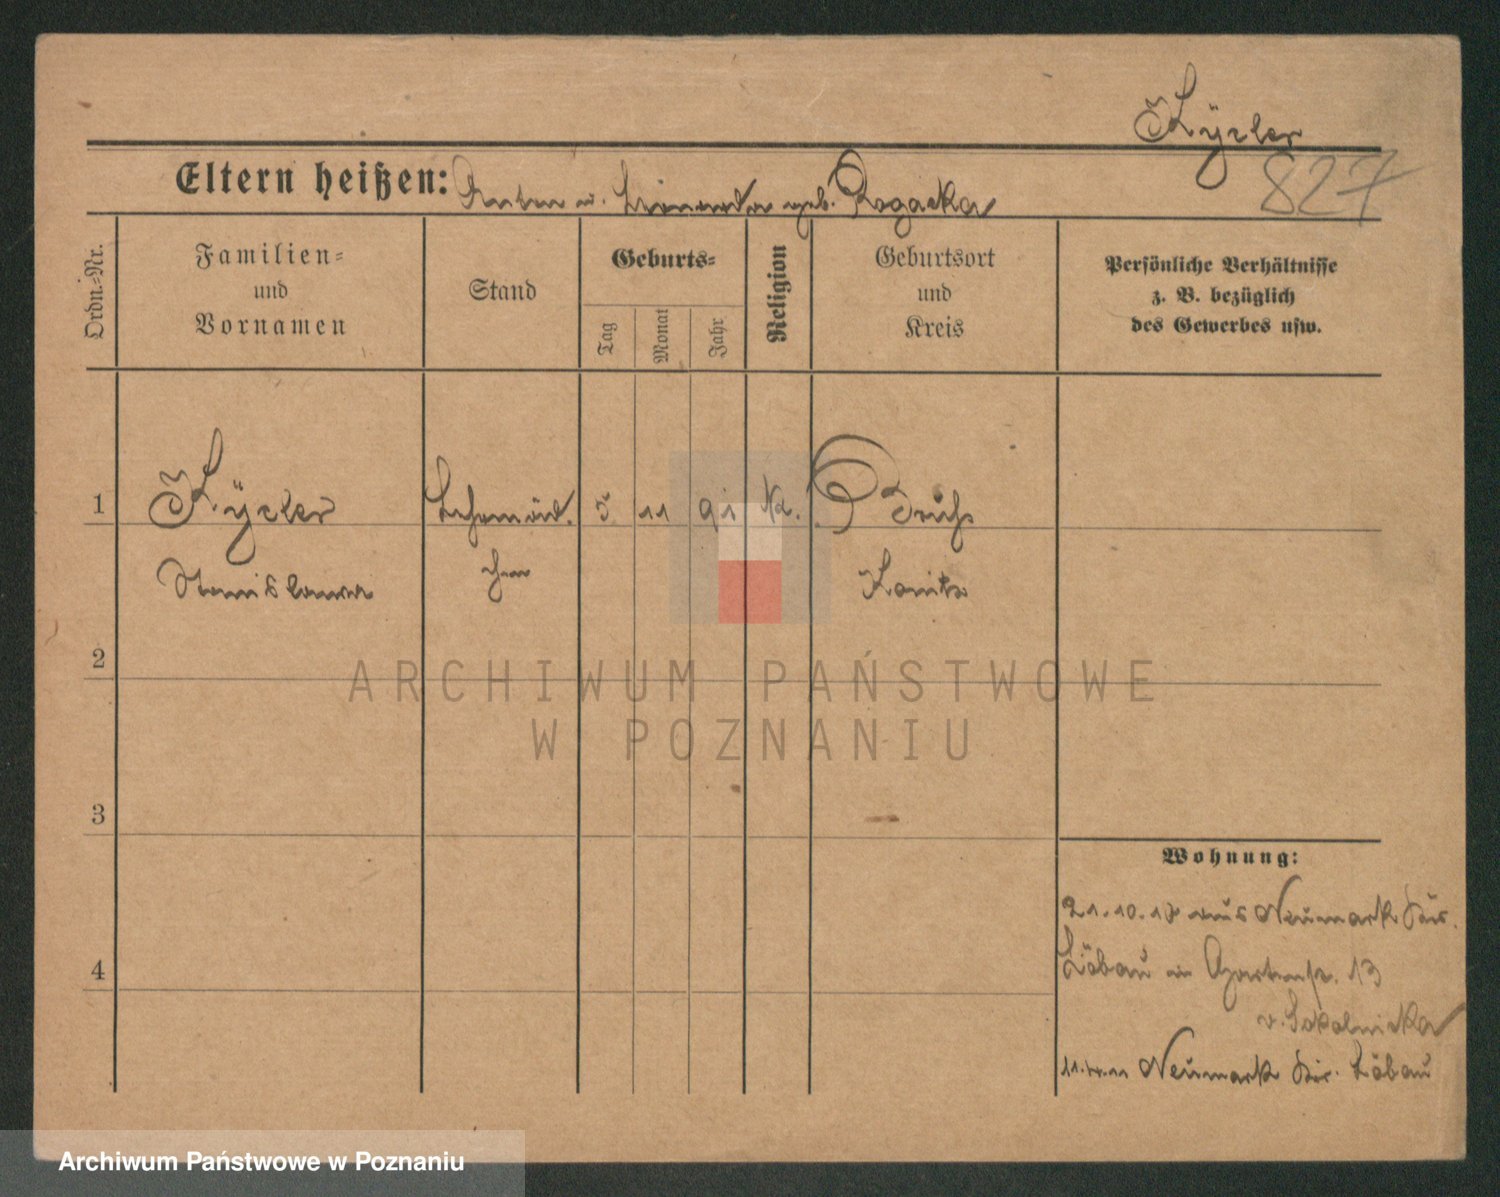 Kÿzler
827
Eltern heißen: Anton u. geb. Rogacka
Ordn.-Nr.
Familien-
und
Vornamen
Stand
Geburts-
Tag
Monat
Jahr
Religion
Geburtsort
und
Kreis
Persönliche Verhältnisse
z. B. bezüglich
des Gewerbes usw.
1
Kÿzler
Stanislawa
5 11 91
Konitz
2
3
4
Wohnung:
21.10.12 aus Neumark Krs.
Löbau in Gartenstr. 13
v. Sokolnicka
Neumark Kr. Löbau
ARCHIWUM PAŃSTWOWE
W POZNANIU
Archiwum Państwowe w Poznaniu